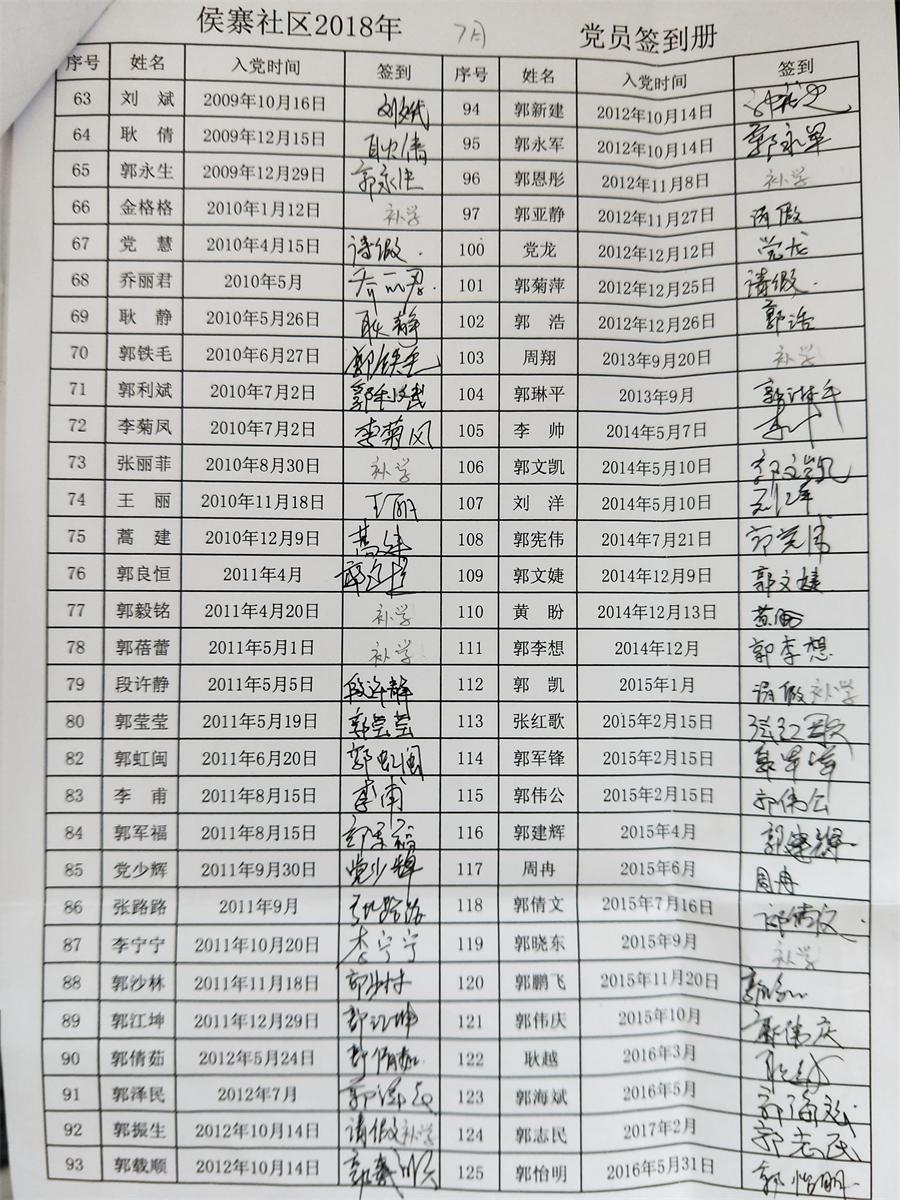 侯寨社区2018年 7月 党员签到册
序号 姓名 入党时间 签到 序号 姓名 入党时间 签到
63 刘斌 2009年10月16日 刘斌 94 郭新建 2012年10月14日
64 耿倩 2009年12月15日 耿倩 95 郭永军 2012年10月14日 郭永军
65 郭永生 2009年12月29日 郭永生 96 郭恩彤 2012年11月8日 补学
66 金格格 2010年1月12日 补学 97 郭亚静 2012年11月27日 请假
67 党慧 2010年4月15日 请假. 100 党龙 2012年12月12日 党龙
68 乔丽君 2010年5月 乔丽君. 101 郭菊萍 2012年12月25日 请假.
69 耿静 2010年5月26日 耿静 102 郭浩 2012年12月26日 郭浩
70 郭铁毛 2010年6月27日 郭铁毛 103 周翔 2013年9月20日 补学
71 郭利斌 2010年7月2日 郭利斌 104 郭琳平 2013年9月 郭琳平
72 李菊凤 2010年7月2日 李菊凤 105 李帅 2014年5月7日 李帅
73 张丽菲 2010年8月30日 补学 106 郭文凯 2014年5月10日 郭文凯
74 王丽 2010年11月18日 王丽 107 刘洋 2014年5月10日
75 蒿建 2010年12月9日 蒿建 108 郭宪伟 2014年7月21日 郭宪伟
76 郭良恒 2011年4月 郭良恒 109 郭文婕 2014年12月9日 郭文婕
77 郭毅铭 2011年4月20日 补学 110 黄盼 2014年12月13日 黄盼
78 郭蓓蕾 2011年5月1日 补学 111 郭李想 2014年12月 郭李想
79 段许静 2011年5月5日 段许静 112 郭凯 2015年1月 请假 补学
80 郭莹莹 2011年5月19日 郭莹莹 113 张红歌 2015年2月15日 张红歌
82 郭虹闽 2011年6月20日 郭虹闽 114 郭军锋 2015年2月15日 郭军锋
83 李甫 2011年8月15日 李甫 115 郭伟公 2015年2月15日 郭伟公
84 郭军福 2011年8月15日 郭军福 116 郭建辉 2015年4月 郭建辉
85 党少辉 2011年9月30日 党少辉 117 周冉 2015年6月 周冉
86 张路路 2011年9月 张路路 118 郭倩文 2015年7月16日 郭倩文.
87 李宁宁 2011年10月20日 李宁宁 119 郭晓东 2015年9月 补学
88 郭沙林 2011年11月18日 郭沙林 120 郭鹏飞 2015年11月20日
89 郭江坤 2011年12月29日 郭江坤 121 郭伟庆 2015年10月 郭伟庆
90 郭倩茹 2012年5月24日 郭倩茹. 122 耿越 2016年3月 耿越
91 郭泽民 2012年7月 郭泽民 123 郭海斌 2016年5月 郭海斌
92 郭振生 2012年10月14日 请假 补学 124 郭志民 2017年2月 郭志民
93 郭载顺 2012年10月14日 郭载顺 125 郭怡明 2016年5月31日 郭怡明.